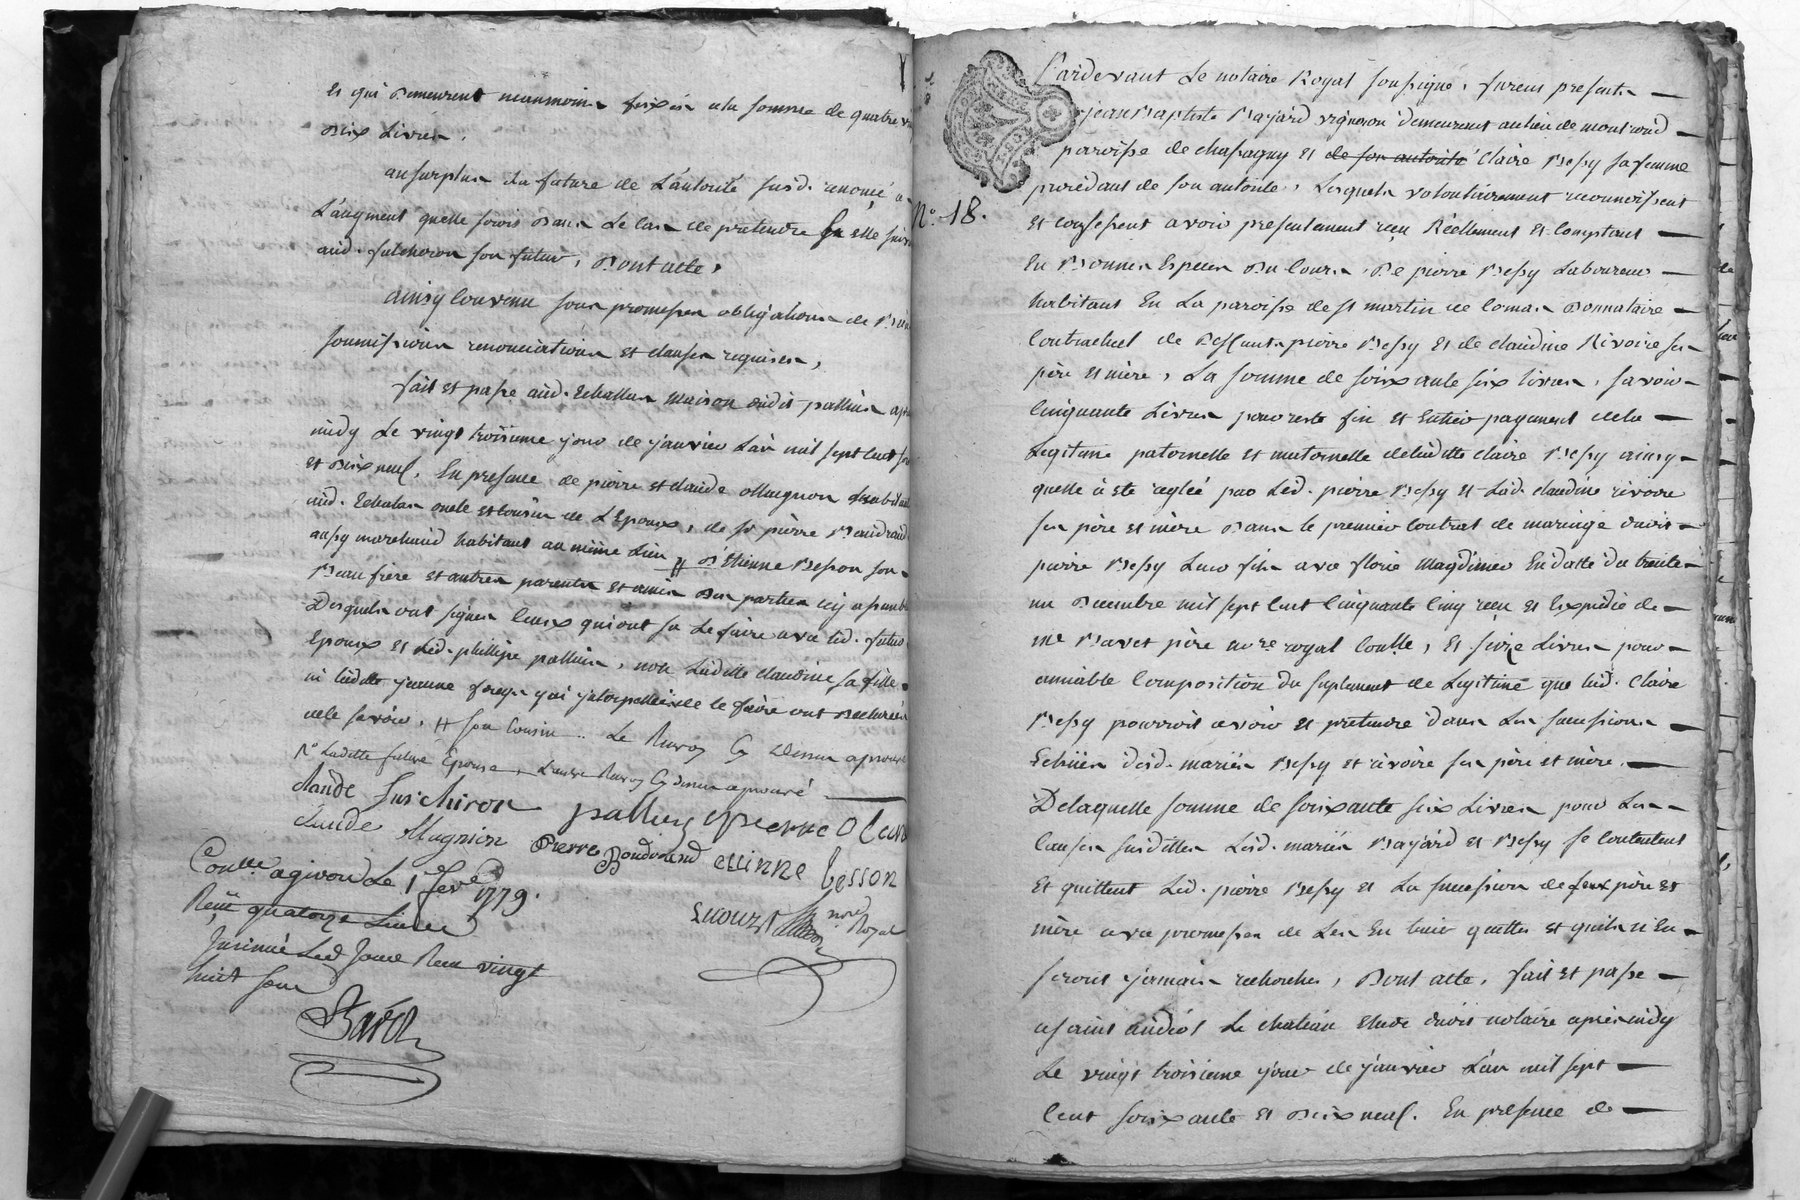 et qui demeurent neanmoins fixés a la somme de quatre
dix Livres.
au surplus la future de L'autorité susd. renoncé a
L'augment quelle seroit dans Le cas de pretendre si elle
aud. fulcheron son futur, Dont acte,
ainsy Convenu sous promesses obligations de
soumissions renonciations et clauses requises,
fait et passé aud. maison dudit pallier
midy Le vingt troisieme jour de janvier L'an mil sept cent
et dix neuf, En presence de pierre et claude Magnion
aud. oncle et cousin de L'Epoux, de sr pierre Baudrand
aussy marchand habitant au même Lieu # d'Etienne Besson son
Beau frère et autres parents et amis des parties icy assemblés
Desquels ont signés Ceux qui ont su Le faire avec led. futur
Epoux et Led. phillipe pallier, non Laditte claudine sa fille
ni ladite jeanne qui jnterpellées de le faire ont declarées
ne le savoir. # son Cousin .. Le Renvoy Cy dessus approuvé
No Laditte future Epouse, L'autre Renvoy Cy dessus approuvé
claude fulchiron pallier pierre
claude Magnion Pierre Boudrand etienne besson
Conllé a givord Le 1er fevr 1779.
Reçu quatorze Livres
Insinué Led Jour Reçu vingt
huit sous
nore Royal
Baret
Pardevant Le notaire Royal soussigné, furent presents
jean Baptiste Bajard vigneron demeurant au lieu de montrond
paroisse de chassagny et de son autorité Claire Bessy sa femme
procédant de son autorité, Lesquels volontairement reconnoissent
No. 18.
et confessent avoir presentement reçu Réellement et Comptant
En Bonnes Especes Du Cours, De pierre Bessy Laboureur
habitant En La paroisse de st martin de Cornas Donnataire
Contractuel de Deffunts pierre Bessy et de claudine Rivoire ses
père et mère, La somme de soixante six livres, savoir
Cinquante Livres pour reste fin et Entier payement de la
Legitime paternelle et maternelle de laditte claire Bessy ainsy
quelle a été reglée par Led. pierre Bessy et Lad. claudine rivoire
ses père et mère Dans le premier Contrat de mariage dudit
pierre Bessy Leur fils avec florie Magdinier En datte du trente
un Decembre mil sept Cent Cinquante Cinq reçu et Expédié de
me Baret père nore royal Conlle, Et seize Livres pour
amiable Composition du suplement de Legitime que lad. Claire
Bessy pourroit avoir et pretendre dans Les successions
Echües desd. mariés Bessy et rivoire ses père et mère.
De laquelle somme de soixante six Livres pour Les
Causes susdittes Lesd. mariés Bajard et Bessy se Contentent
Et quittent Led. pierre Bessy et La succession de feux père et
mère avec promesses de Les En tenir quittes et quils n'En
seront jamais recherchés, Dont acte, fait et passé
a saint andéol Le chateau Etude dudit notaire après midy
Le vingt troisieme jour de janvier L'an mil sept
Cent soixante et Dix neuf. En presence de